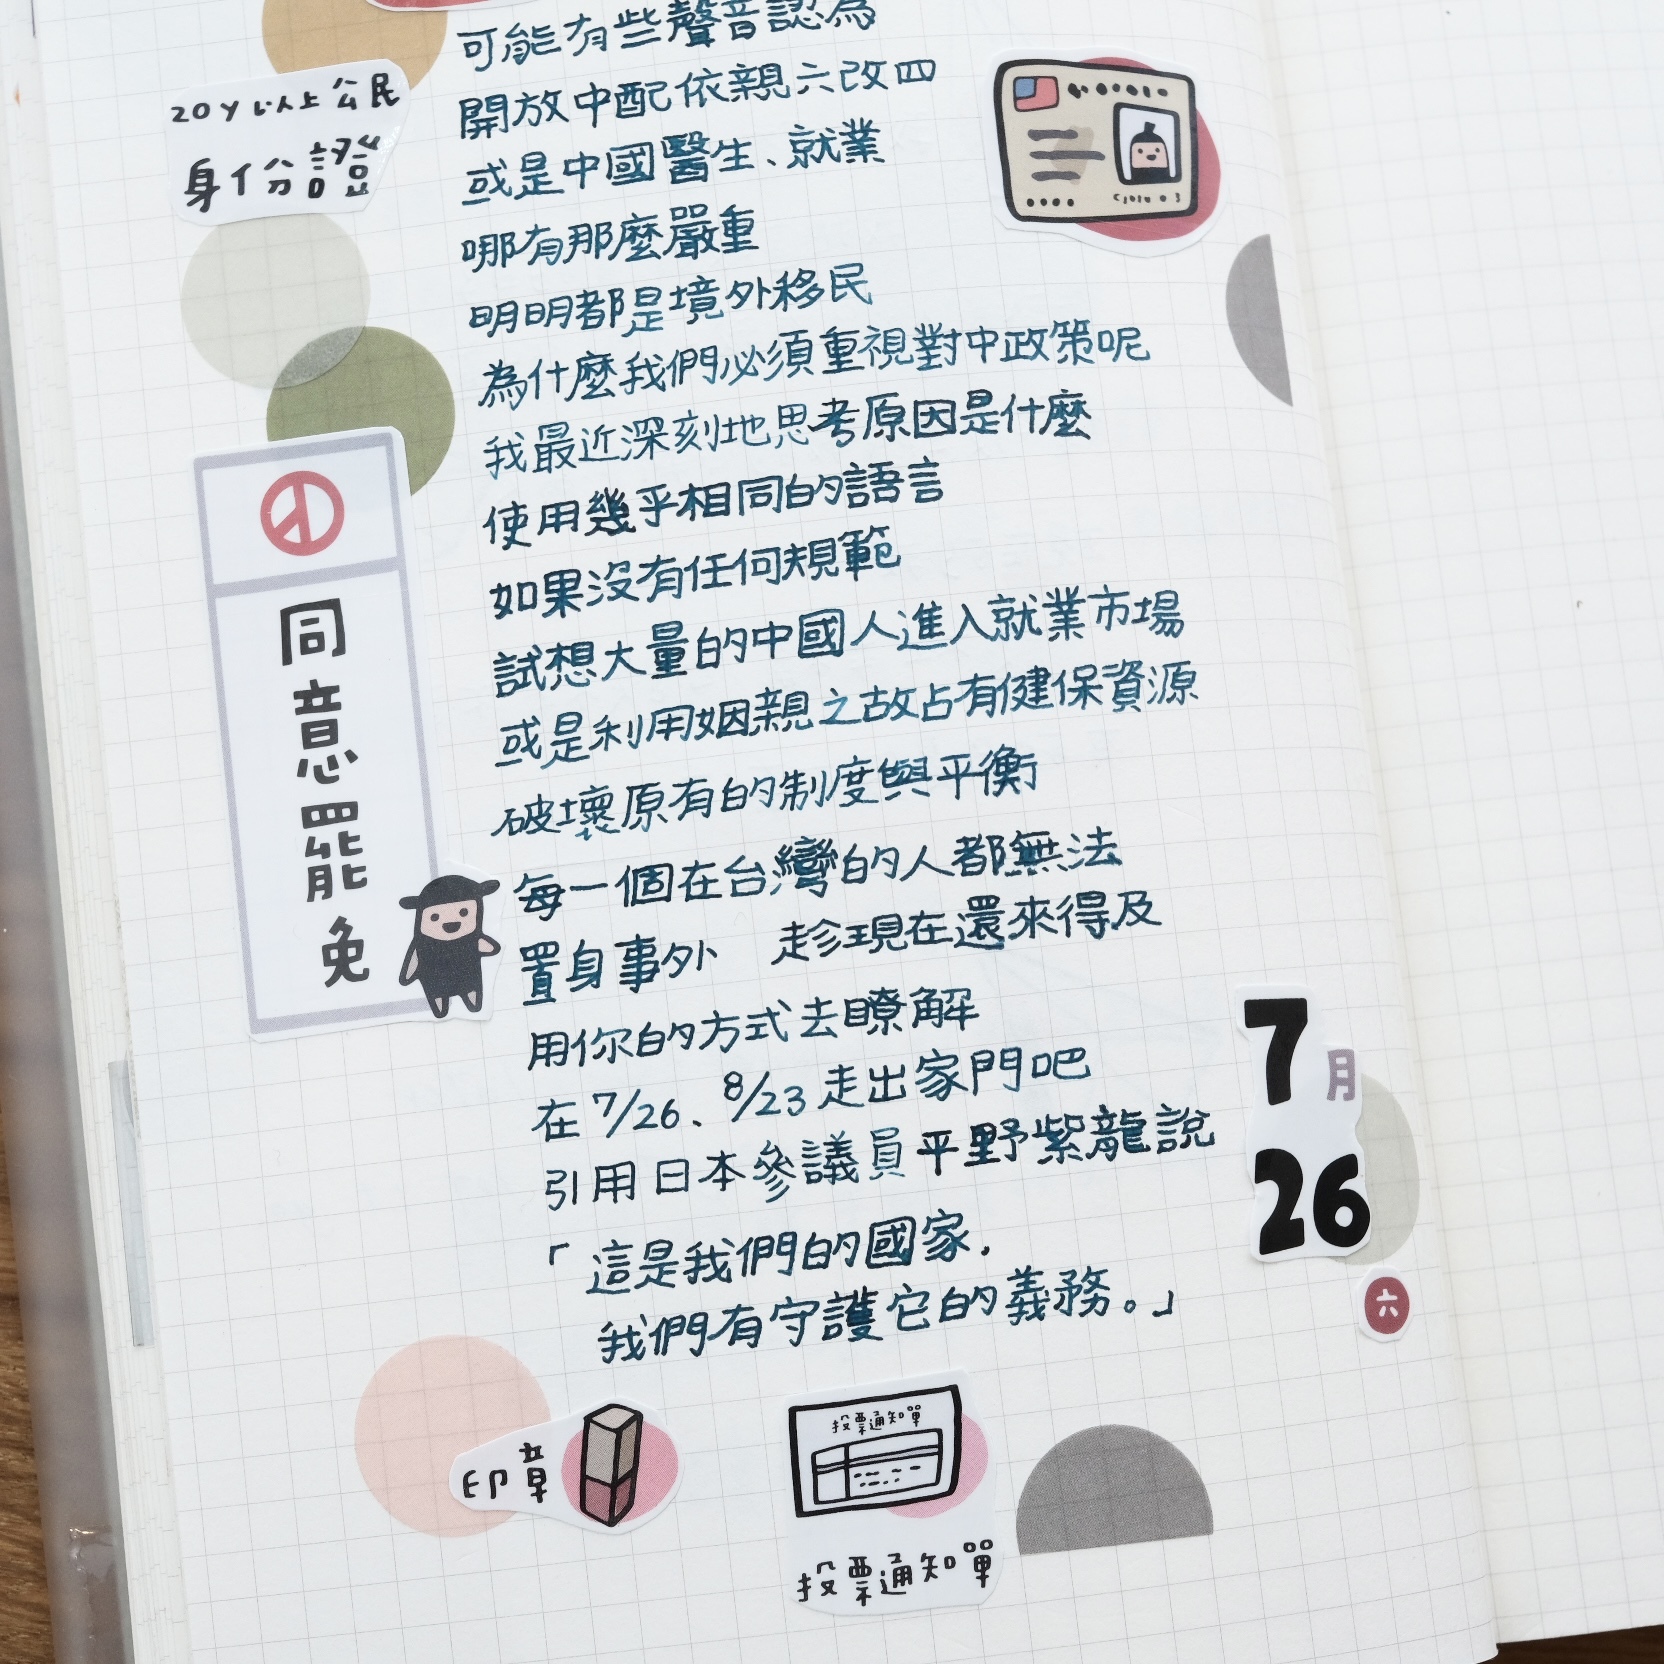 可能有些聲音認為
開放中配依親六改四
或是中國醫生、就業
哪有那麼嚴重
明明都是境外移民
為什麼我們必須重視對中政策呢
我最近深刻地思考原因是什麼
使用幾乎相同的語言
如果沒有任何規範
試想大量的中國人進入就業市場
或是利用姻親之故占有健保資源
破壞原有的制度與平衡
每一個在台灣的人都無法
置身事外　趁現在還來得及
用你的方式去瞭解
在 7/26、8/23 走出家門吧
引用日本參議員平野紫龍說
「這是我們的國家,
我們有守護它的義務。」
20y以上公民
身份證
同意罷免
7月
26
六
印章
投票通知單
投票通知單